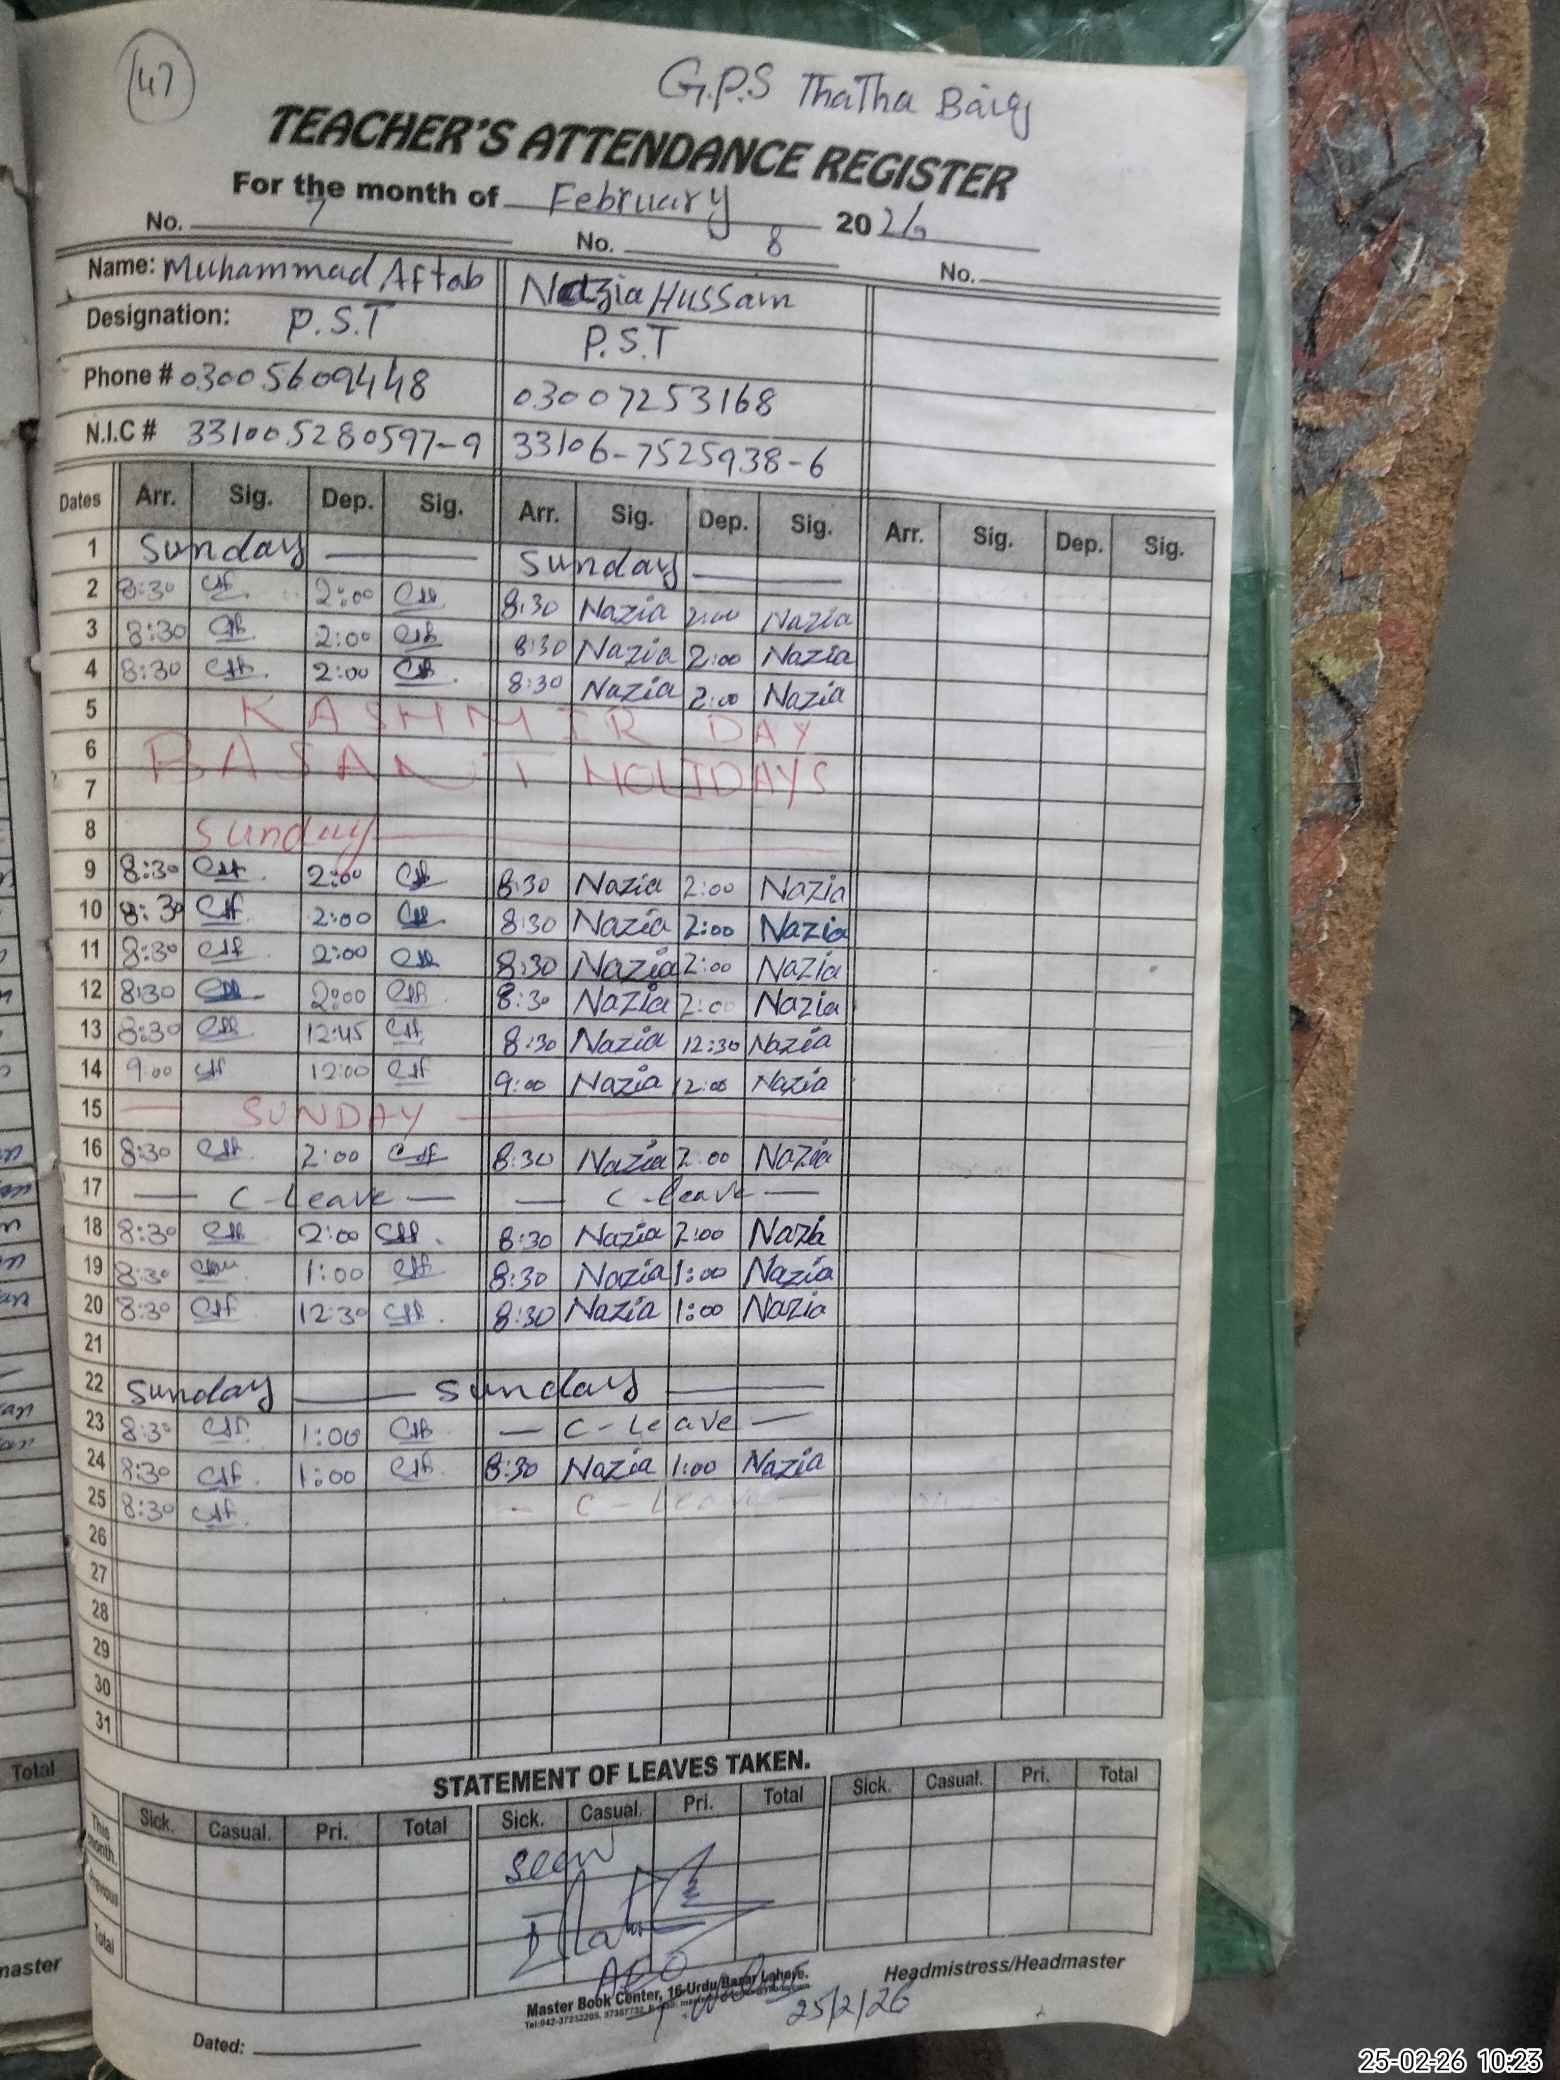 47
G.P.S ThaTha Baig
TEACHER'S ATTENDANCE REGISTER
For the month of February 2026
No. 7 No. 8 No.
Name: Muhammad Aftab Nazia Hussain
Designation: P.S.T P.S.T
Phone # 03005609448 03007253168
N.I.C # 331005280597-9 33106-7525938-6
Dates Arr. Sig. Dep. Sig. Arr. Sig. Dep. Sig. Arr. Sig. Dep. Sig.
1 Sunday Sunday
2 8:30 2:00 8:30 Nazia 2:00 Nazia
3 8:30 2:00 8:30 Nazia 2:00 Nazia
4 8:30 2:00 8:30 Nazia 2:00 Nazia
5 KASHMIR DAY
6 BASANT HOLIDAYS
7
8 Sunday
9 8:30 2:00 8:30 Nazia 2:00 Nazia
10 8:30 2:00 8:30 Nazia 2:00 Nazia
11 8:30 2:00 8:30 Nazia 2:00 Nazia
12 8:30 2:00 8:30 Nazia 2:00 Nazia
13 8:30 12:45 8:30 Nazia 12:30 Nazia
14 9:00 12:00 9:00 Nazia 12:00 Nazia
15 SUNDAY
16 8:30 2:00 8:30 Nazia 2:00 Nazia
17 — C-Leave — — C-leave —
18 8:30 2:00 8:30 Nazia 2:00 Nazia
19 8:30 1:00 8:30 Nazia 1:00 Nazia
20 8:30 12:30 8:30 Nazia 1:00 Nazia
21
22 Sunday Sunday
23 8:30 1:00 — C-Leave —
24 8:30 1:00 8:30 Nazia 1:00 Nazia
25 8:30 - C-Leave -
26
27
28
29
30
31
Total
STATEMENT OF LEAVES TAKEN.
Sick. Casual. Pri. Total Sick. Casual. Pri. Total Sick. Casual. Pri. Total
This month.
Previous
Total
Seen
AEO
25/2/26
master
Headmistress/Headmaster
Master Book Center, 16-Urdu Bazar Lahore.
Dated:
25-02-26 10:23